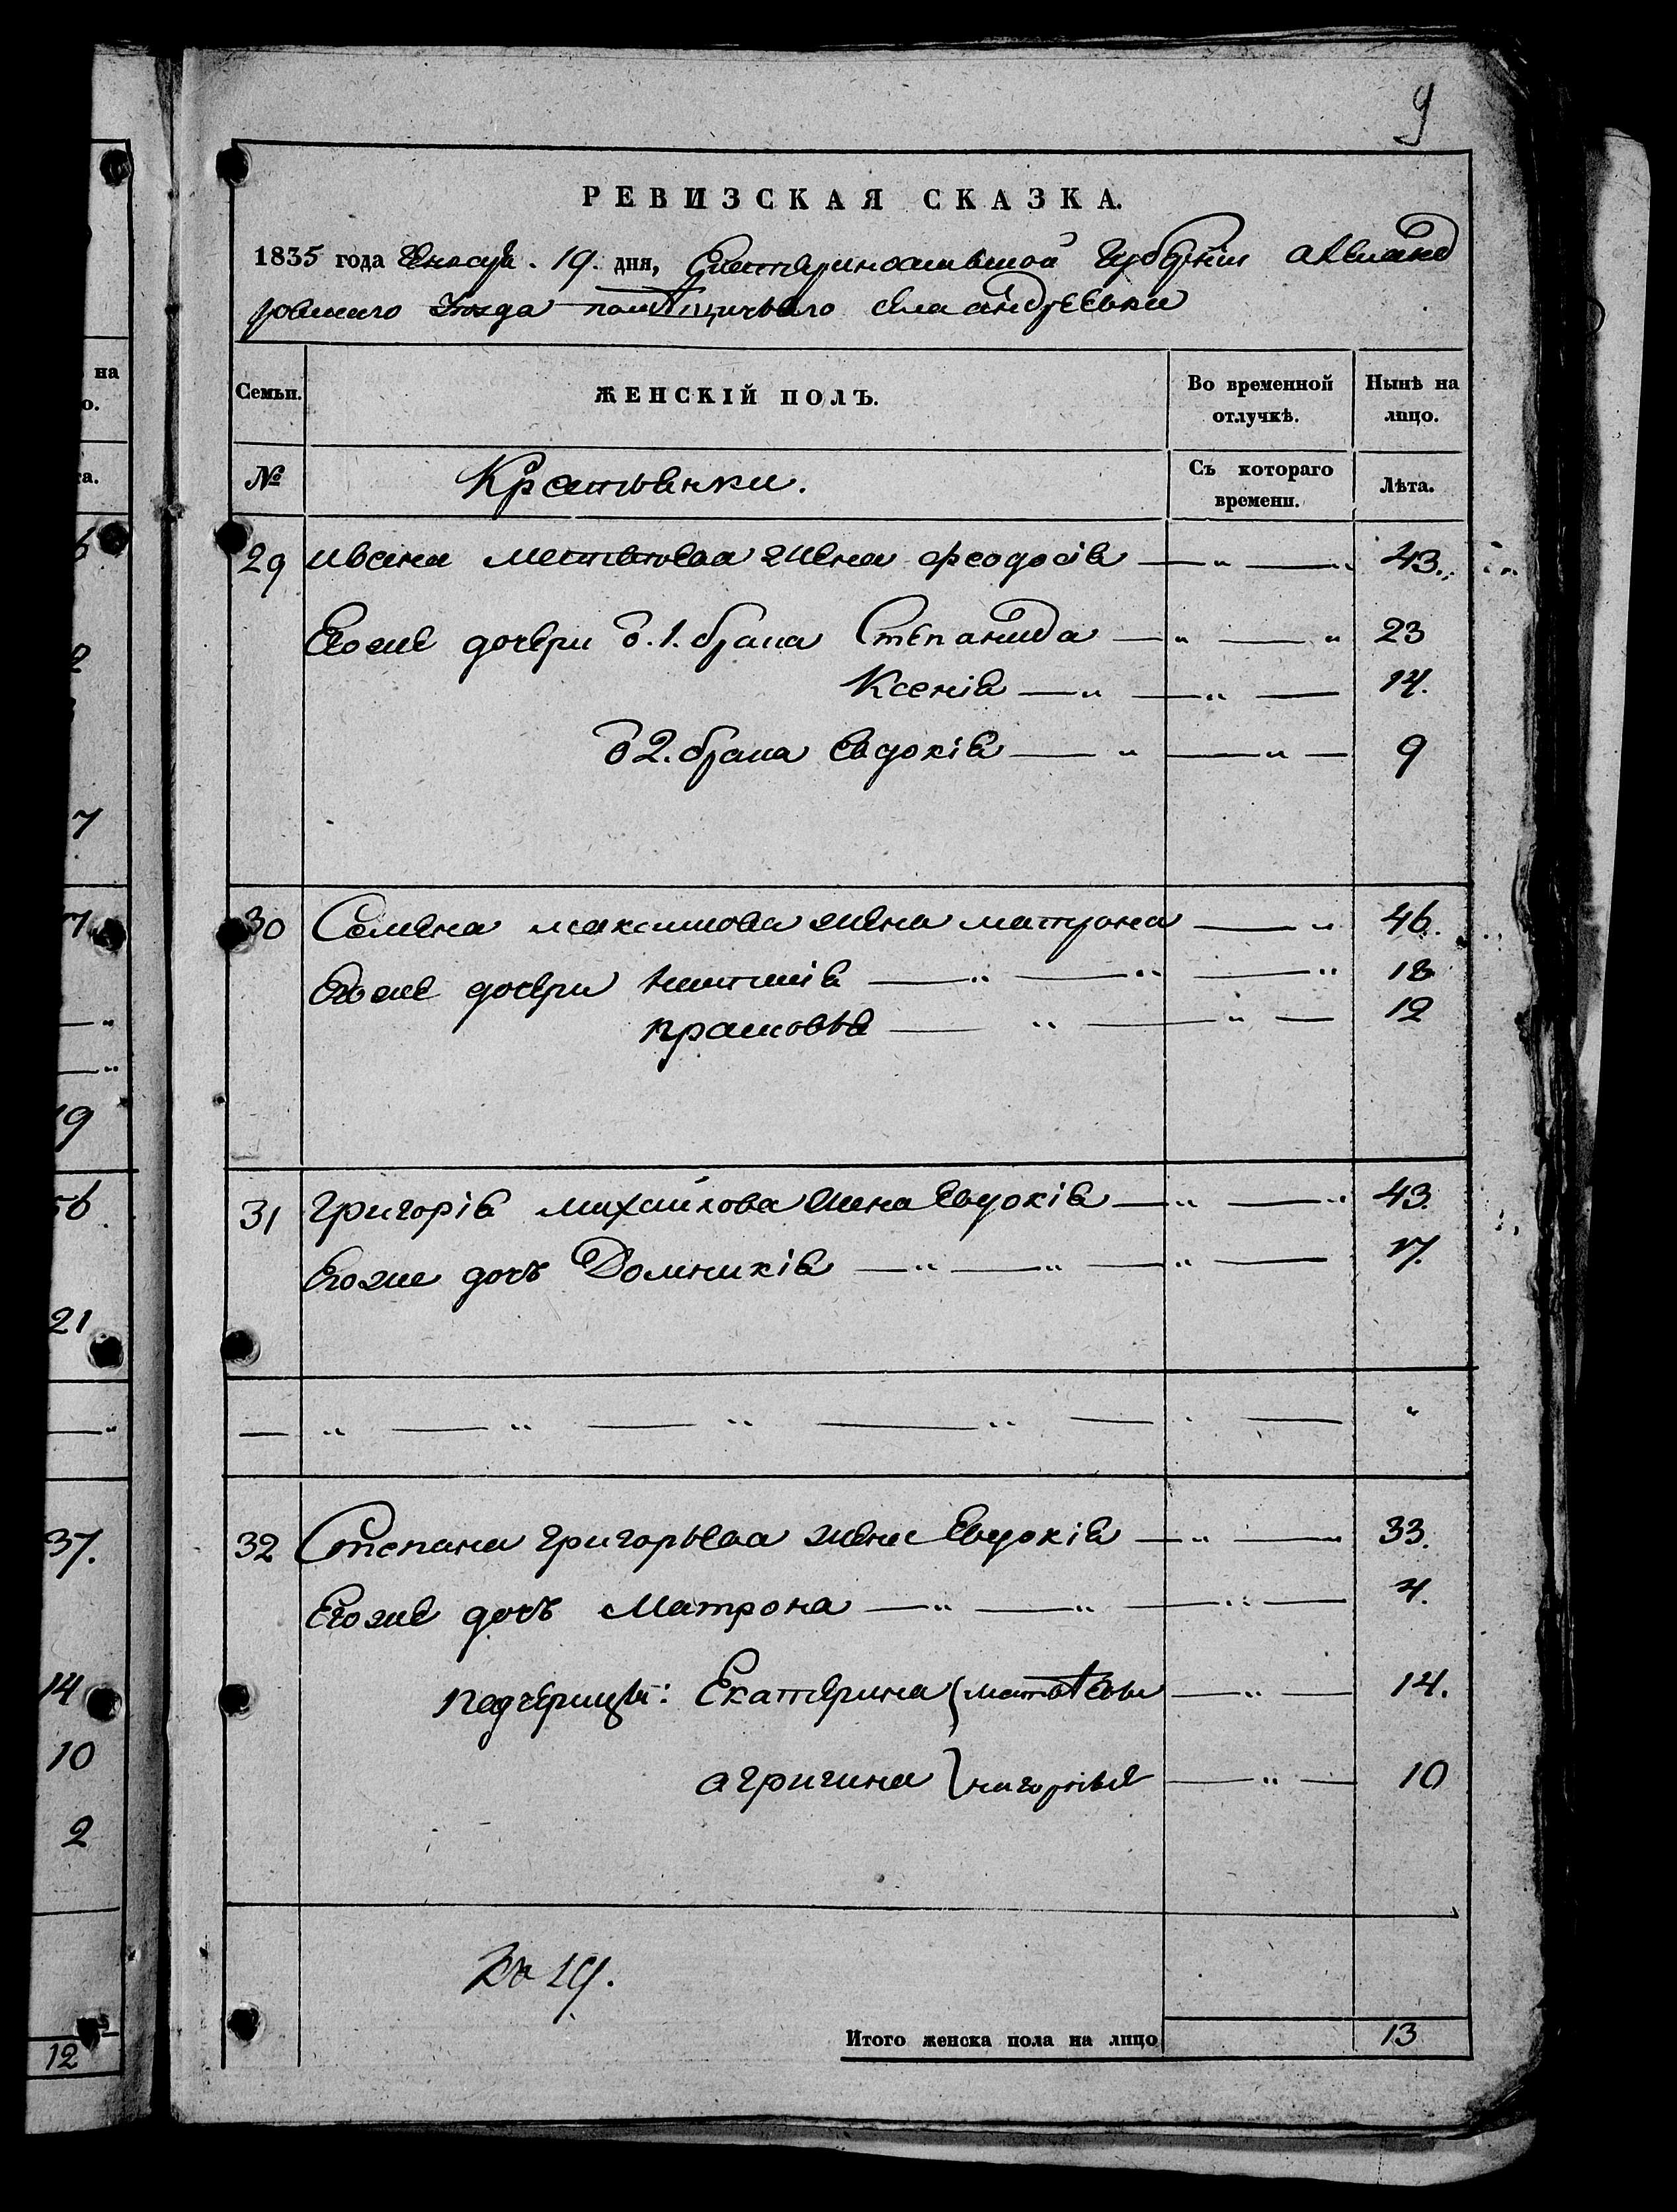 9
РЕВИЗСКАЯ СКАЗКА.
1835 года Генваря. 19. дня, Екатеринославской Губернии Александ
ровского Уезда помѣщичьяго села андреевки
Семьи.
ЖЕНСКІЙ ПОЛЪ.
Во временной
отлучкѣ.
Нынѣ на
лицо.
№
Крестьянки.
Съ котораго
времени.
Лѣта.
29 ивана жена феодосія — " — " 43.
Егоже дочери 1. брака Степанида — " — " 23
Ксенія — " — " — 14.
2. брака Евдокія — " — " — 9
30 Семена максимова жена матрона — " 46.
Егоже дочери — " — " — " 18
прасковья — " — " — 12
31 григорія михайлова жена Евдокія — " — " 43.
Егоже дочь Домникія — " — " — " — 17.
— " — " — " — " — " — "
32 Степана григорьева жена Евдокія — " — " 33.
Егоже дочь Матрона — " — " — " — 4.
падчерицы: Екатерина — " — 14.
агрипина — " — 10
Итого женска пола на лицо 13
на
о.
а.
6
2
7
7
— "
— "
19
56
21
— "
37.
14
10
2
12